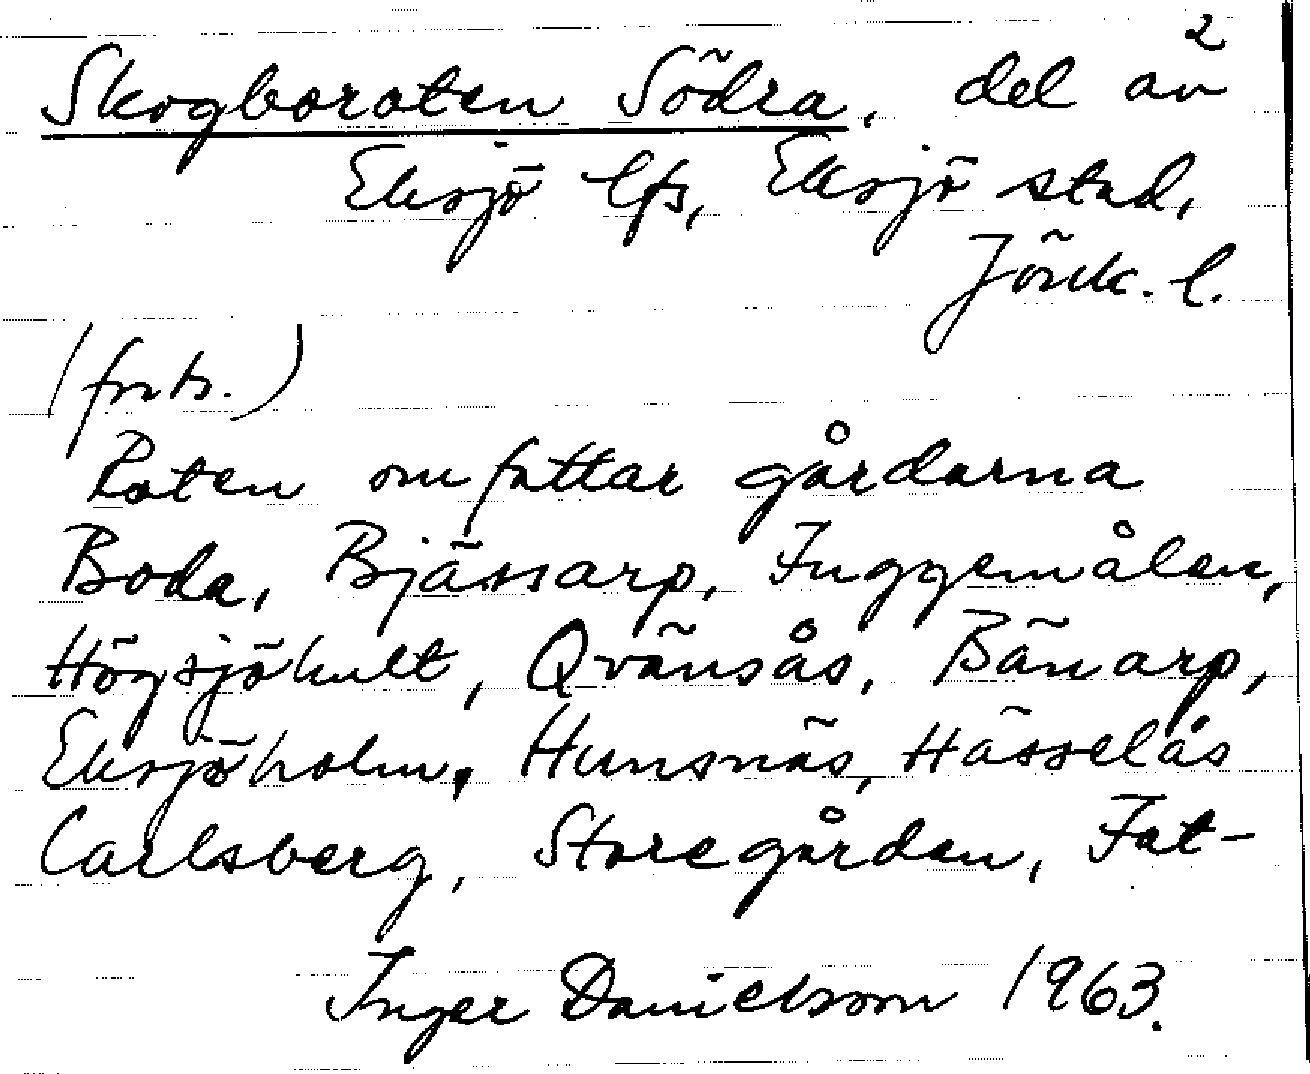 2
Skogboroten Södra, del av
Eksjö lfs, Eksjö stad,
Jönk. l.
(forts.)
Roten omfattar gårdarna
Boda, Bjässarp, Inggemålen,
Högsjöhult, Qvänsås, Bänarp,
Eksjöholm, Hunsnäs, Hässelås
Carlsberg, Storegården, Fat-
Inger Danielsson 1963.